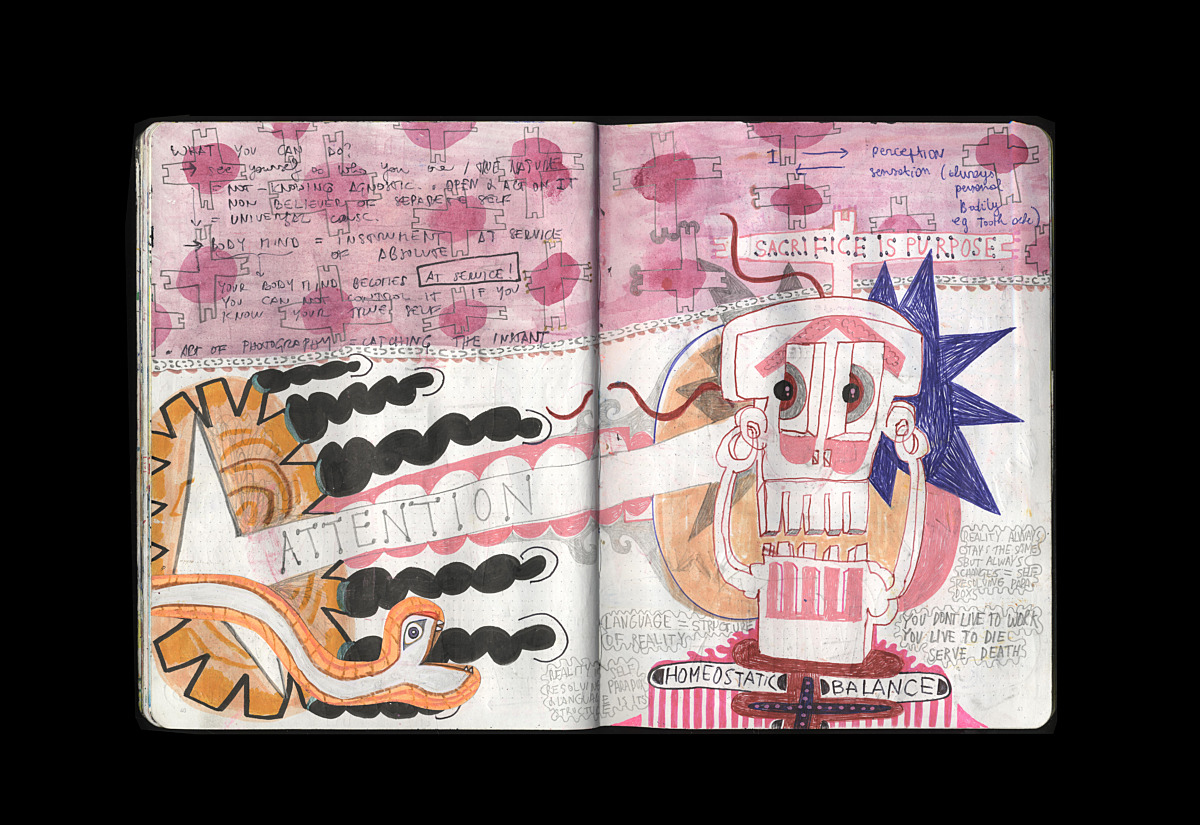 WHAT YOU CAN DO?
→ see yourself as who you are / TRUE NATURE
= NOT-KNOWING AGNOSTIC. OPEN & ACT ON IT
NON BELIEVER OF SEPARATE SELF
= UNIVERSAL CAUSE.
→ BODY MIND = INSTRUMENT AT SERVICE
OF ABSOLUTE
YOUR BODY MIND BECOMES AT SERVICE!
YOU CAN NOT CONTROL IT IF YOU
KNOW YOUR TRUE SELF
• ART OF PHOTOGRAPHY = CATCHING THE INSTANT
ATTENTION
1 → perception
sensation (always
personal
Bodily
eg Tooth ache)
SACRIFICE IS PURPOSE
REALITY ALWAYS
STAYS THE SAME
BUT ALWAYS
CHANGES = SELF
RESOLVING PARA
DOX
LANGUAGE = STRUCTURE
OF REALITY
YOU DONT LIVE TO WORK
YOU LIVE TO DIE
SERVE DEATHS
REALITY = SELF
RESOLVING PARADOX
& LANGUAGE IS ITS
STRUCTURE
HOMEOSTATIC BALANCE